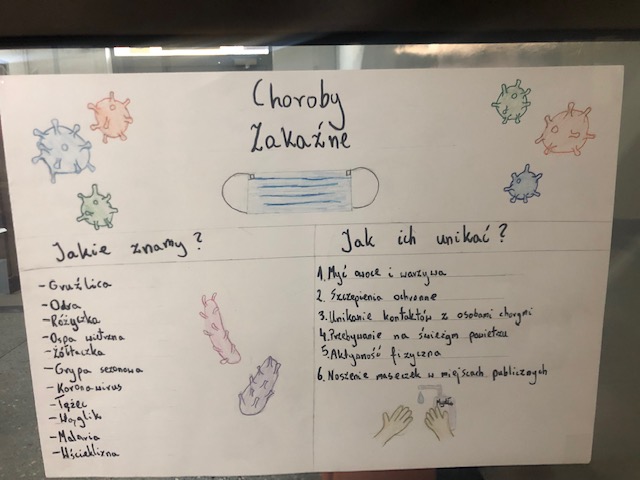 Choroby
Zakaźne
Jakie znamy?
- Gruźlica
- Odra
- Różyczka
- Ospa wietrzna
- Żółtaczka
- Grypa sezonowa
- Koronawirus
- Tężec
- Wąglik
- Malaria
- Wścieklizna
Jak ich unikać?
1. Myć owoce i warzywa
2. Szczepienia ochronne
3. Unikanie kontaktów z osobami chorymi
4. Przebywanie na świeżym powietrzu
5. Aktywność fizyczna
6. Noszenie maseczek w miejscach publicznych